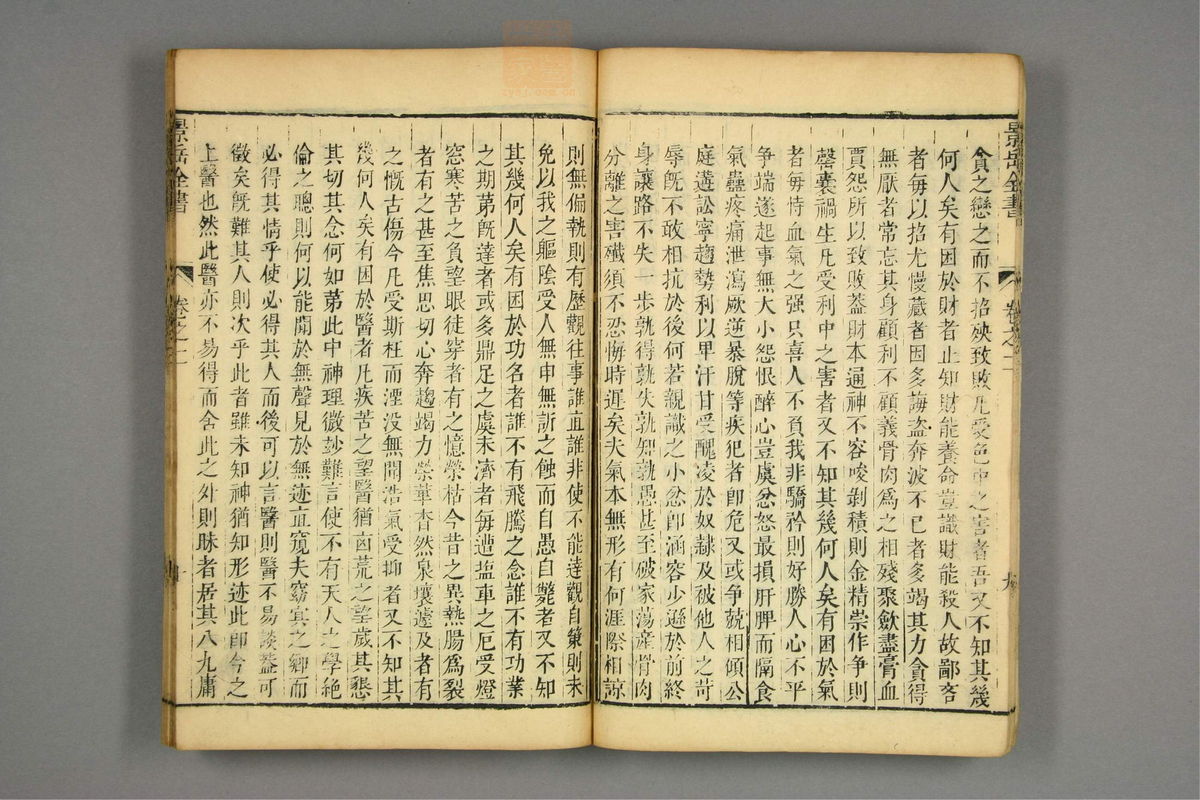 景岳全書
卷之二
貪之戀之而不招殃致敗凡受色中之害者吾又不知其幾
何人矣有困於財者止知財能養命豈識財能殺人故鄙吝
者每以招尤慢藏者因多誨盗奔波不已者多竭其力貪得
無厭者常忘其身顧利不顧義骨肉爲之相殘聚歛盡膏血
賈怨所以致敗葢財本通神不容唆剝積則金精崇作争則
罄囊禍生凡受利中之害者又不知其幾何人矣有困於氣
者每恃血氣之强只喜人不負我非驕矜則好勝人心不平
争端遂起事無大小怨恨醉心豈虞忿怒最損肝脾而膈食
氣蠱疼痛泄瀉厥逆暴脫等疾犯者卽危又或争兢相傾公
庭遘訟寧趨勢利以卑汗甘受醜凌於奴隷及被他人之苛
辱旣不敢相抗於後何若親識之小忿卽涵容少遜於前終
身讓路不失一步孰得孰失孰知孰愚甚至破家荡産骨肉
分離之害殱須不恐悔時遲矣夫氣本無形有何涯際相諒
則無偏執則有歷觀往事誰直誰非使不能達觀自策則未
免以我之軀陰受人無申無訴之蝕而自愚自斃者又不知
其幾何人矣有困於功名者誰不有飛騰之念誰不有功業
之期第旣達者或多鼎足之虞未濟者每遭塩車之厄受燈
窓寒苦之負望眼徒穿者有之憶榮枯今昔之異熱腸爲裂
者有之甚至焦思切心奔趨竭力榮華杳然泉壤遽及者有
之慨古傷今凡受斯枉而湮没無聞浩氣受抑者又不知其
幾何人矣有困於醫者凡疾苦之望醫猶凶荒之望歲其懇
其切其念何如第此中神理微玅難言使不有天人之學絕
倫之聰則何以能聞於無聲見於無迹直窺夫窈冥之鄉而
必得其情乎使必得其人而後可以言醫則醫不易談葢可
徵矣旣難其人則次乎此者雖未知神猶知形迹此卽今之
上醫也然此醫亦不易得而舍此之外則昧者居其八九庸
景岳全書
卷之二